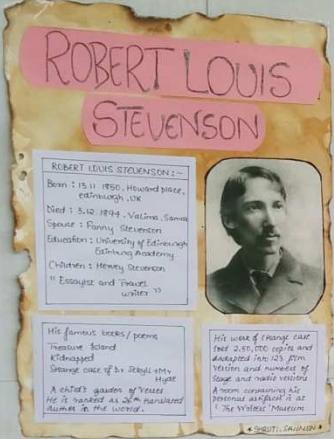 ROBERT LOUIS
STEVENSON
ROBERT LOUIS STEVENSON :-
Born : 13.11 1850, Howard place,
edinburgh, UK
Died : 3.12.1894. Valima, Samoa
Spouse : Fanny Stevenson
Education : University of Edinburgh
Edinburg Academy
Children : Hervey Stevenson
" Essayist and Travel
writer "
His famous books/poems
Treasure Island
Kidnapped
Strange case of Dr Jekyll & Mr
Hyde
A child's garden of verses
He is ranked as 26th translated
author in the world.
His work of strange case
sold 2,50,000 copies and
adapted into 123 film
version and numbers of
stage and radio versions
A room containing his
personal artifact is at
'The Writers' Museum